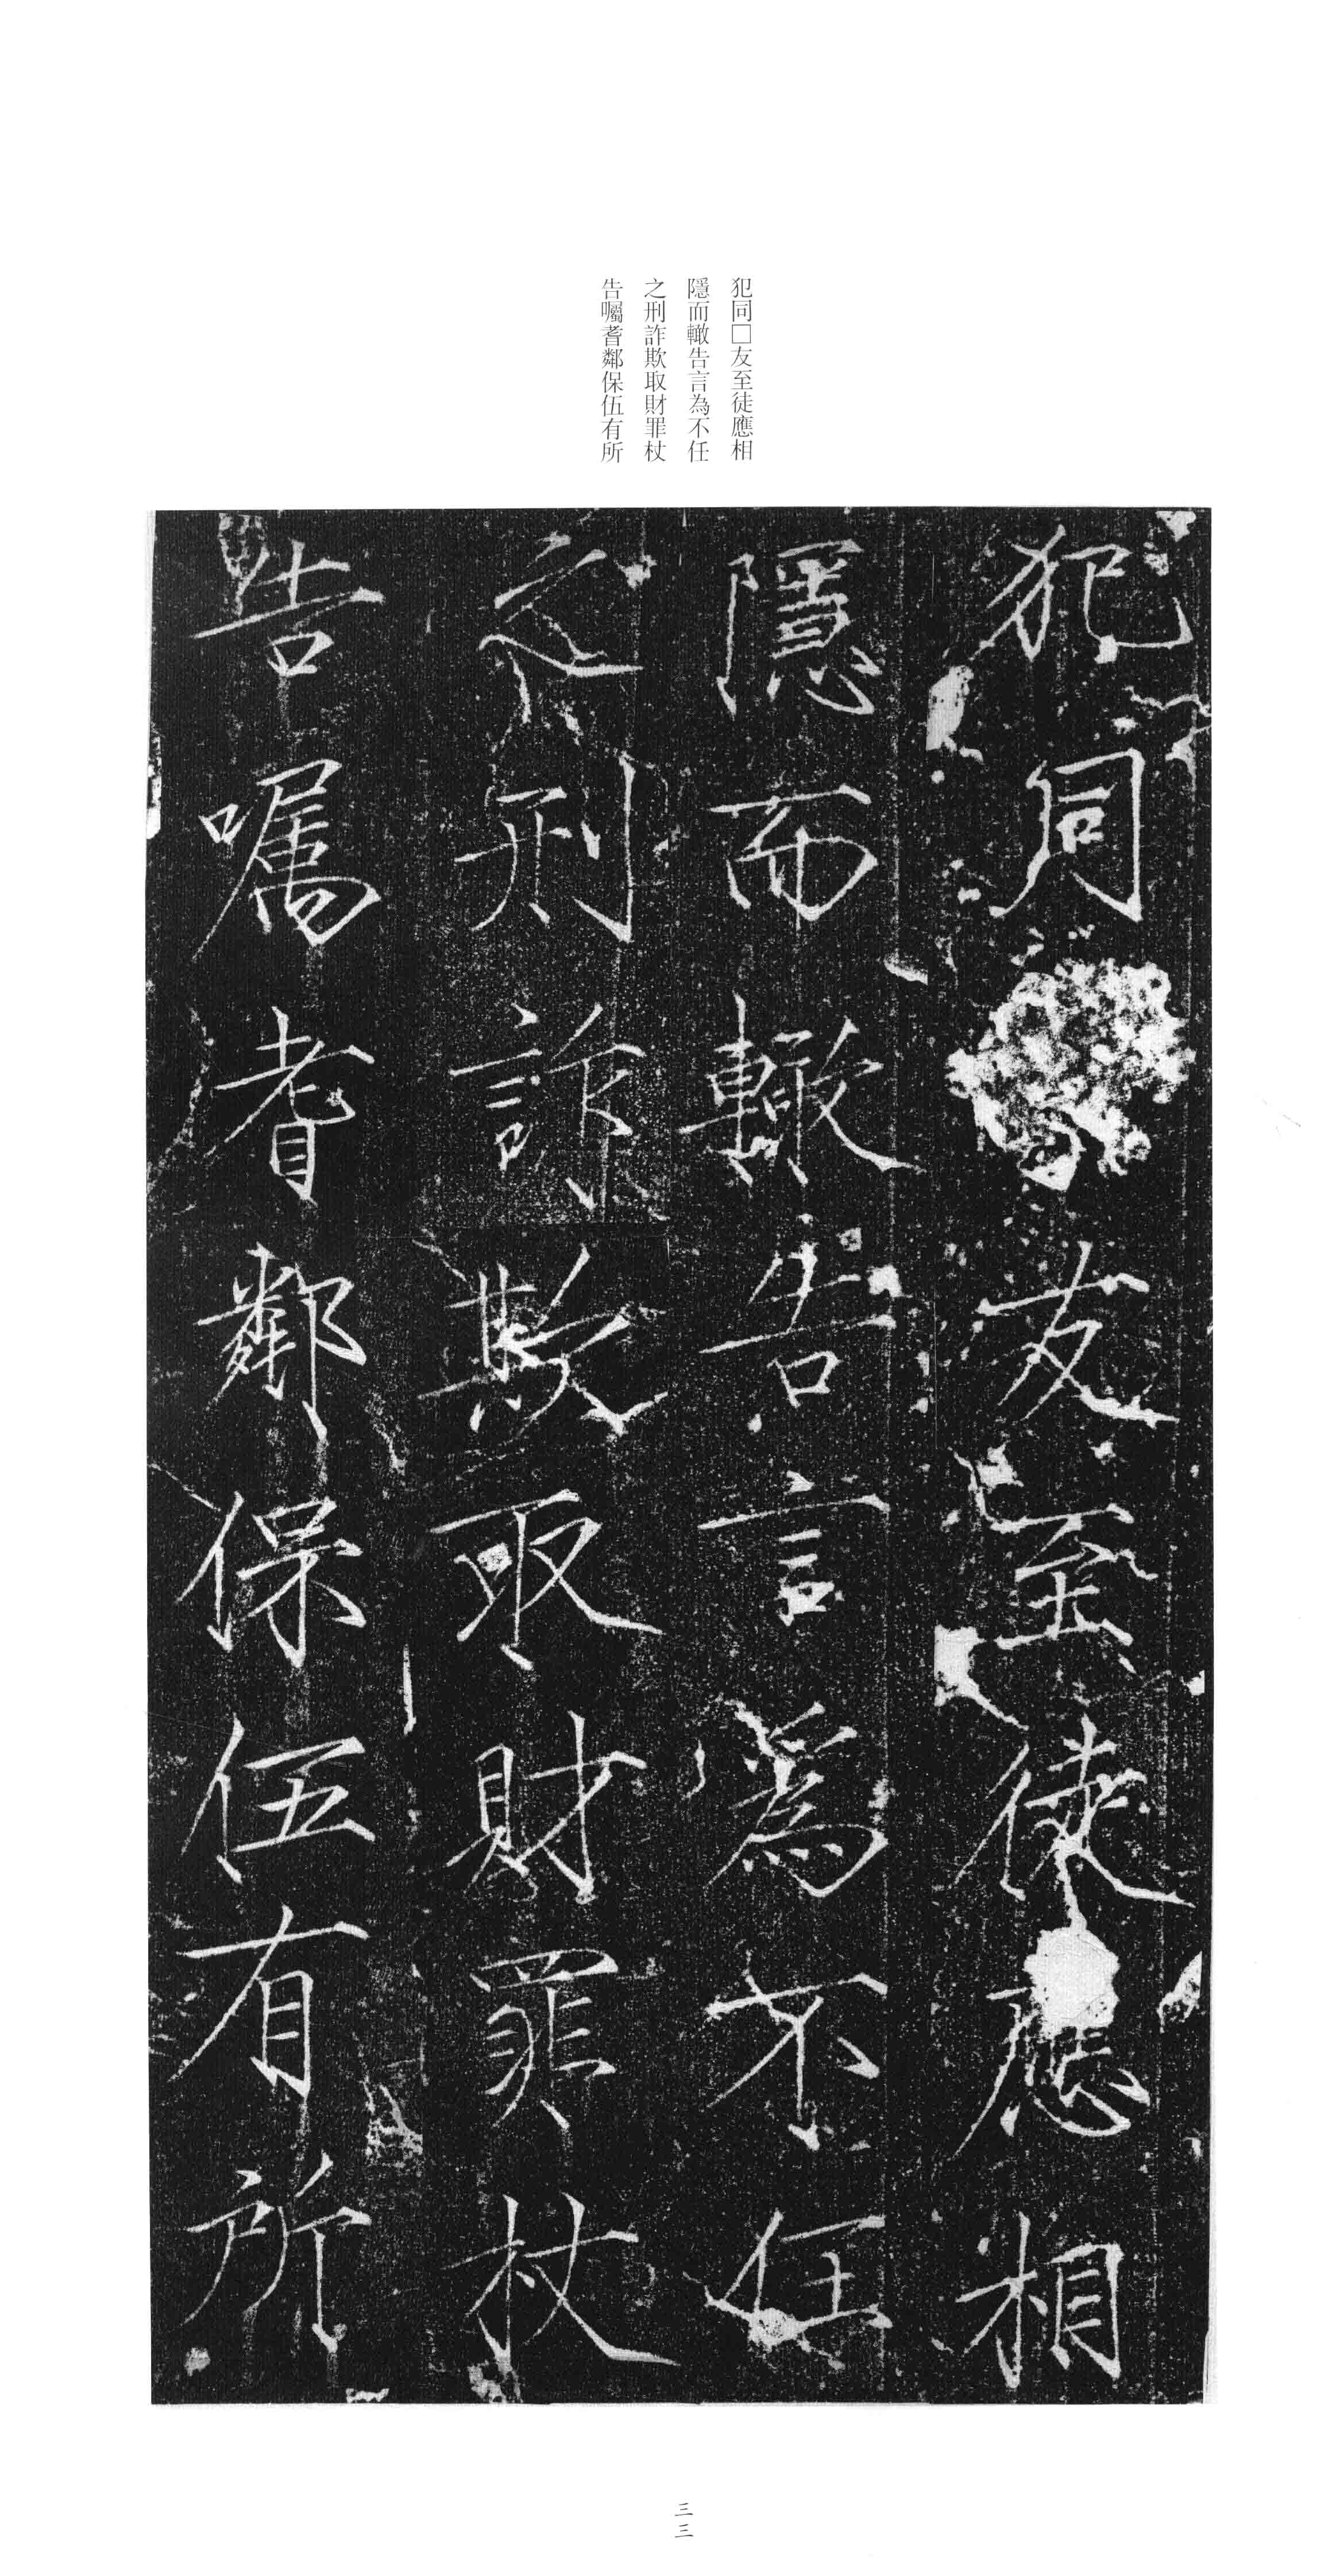 犯同□友至徒應相
隱而轍告言為不任
之刑詐欺取財罪杖
告囑耆鄰保伍有所
犯同友至徒應相
隱而轍告言為不任
之刑詐欺取財罪杖
告囑耆鄰保伍有所
三三